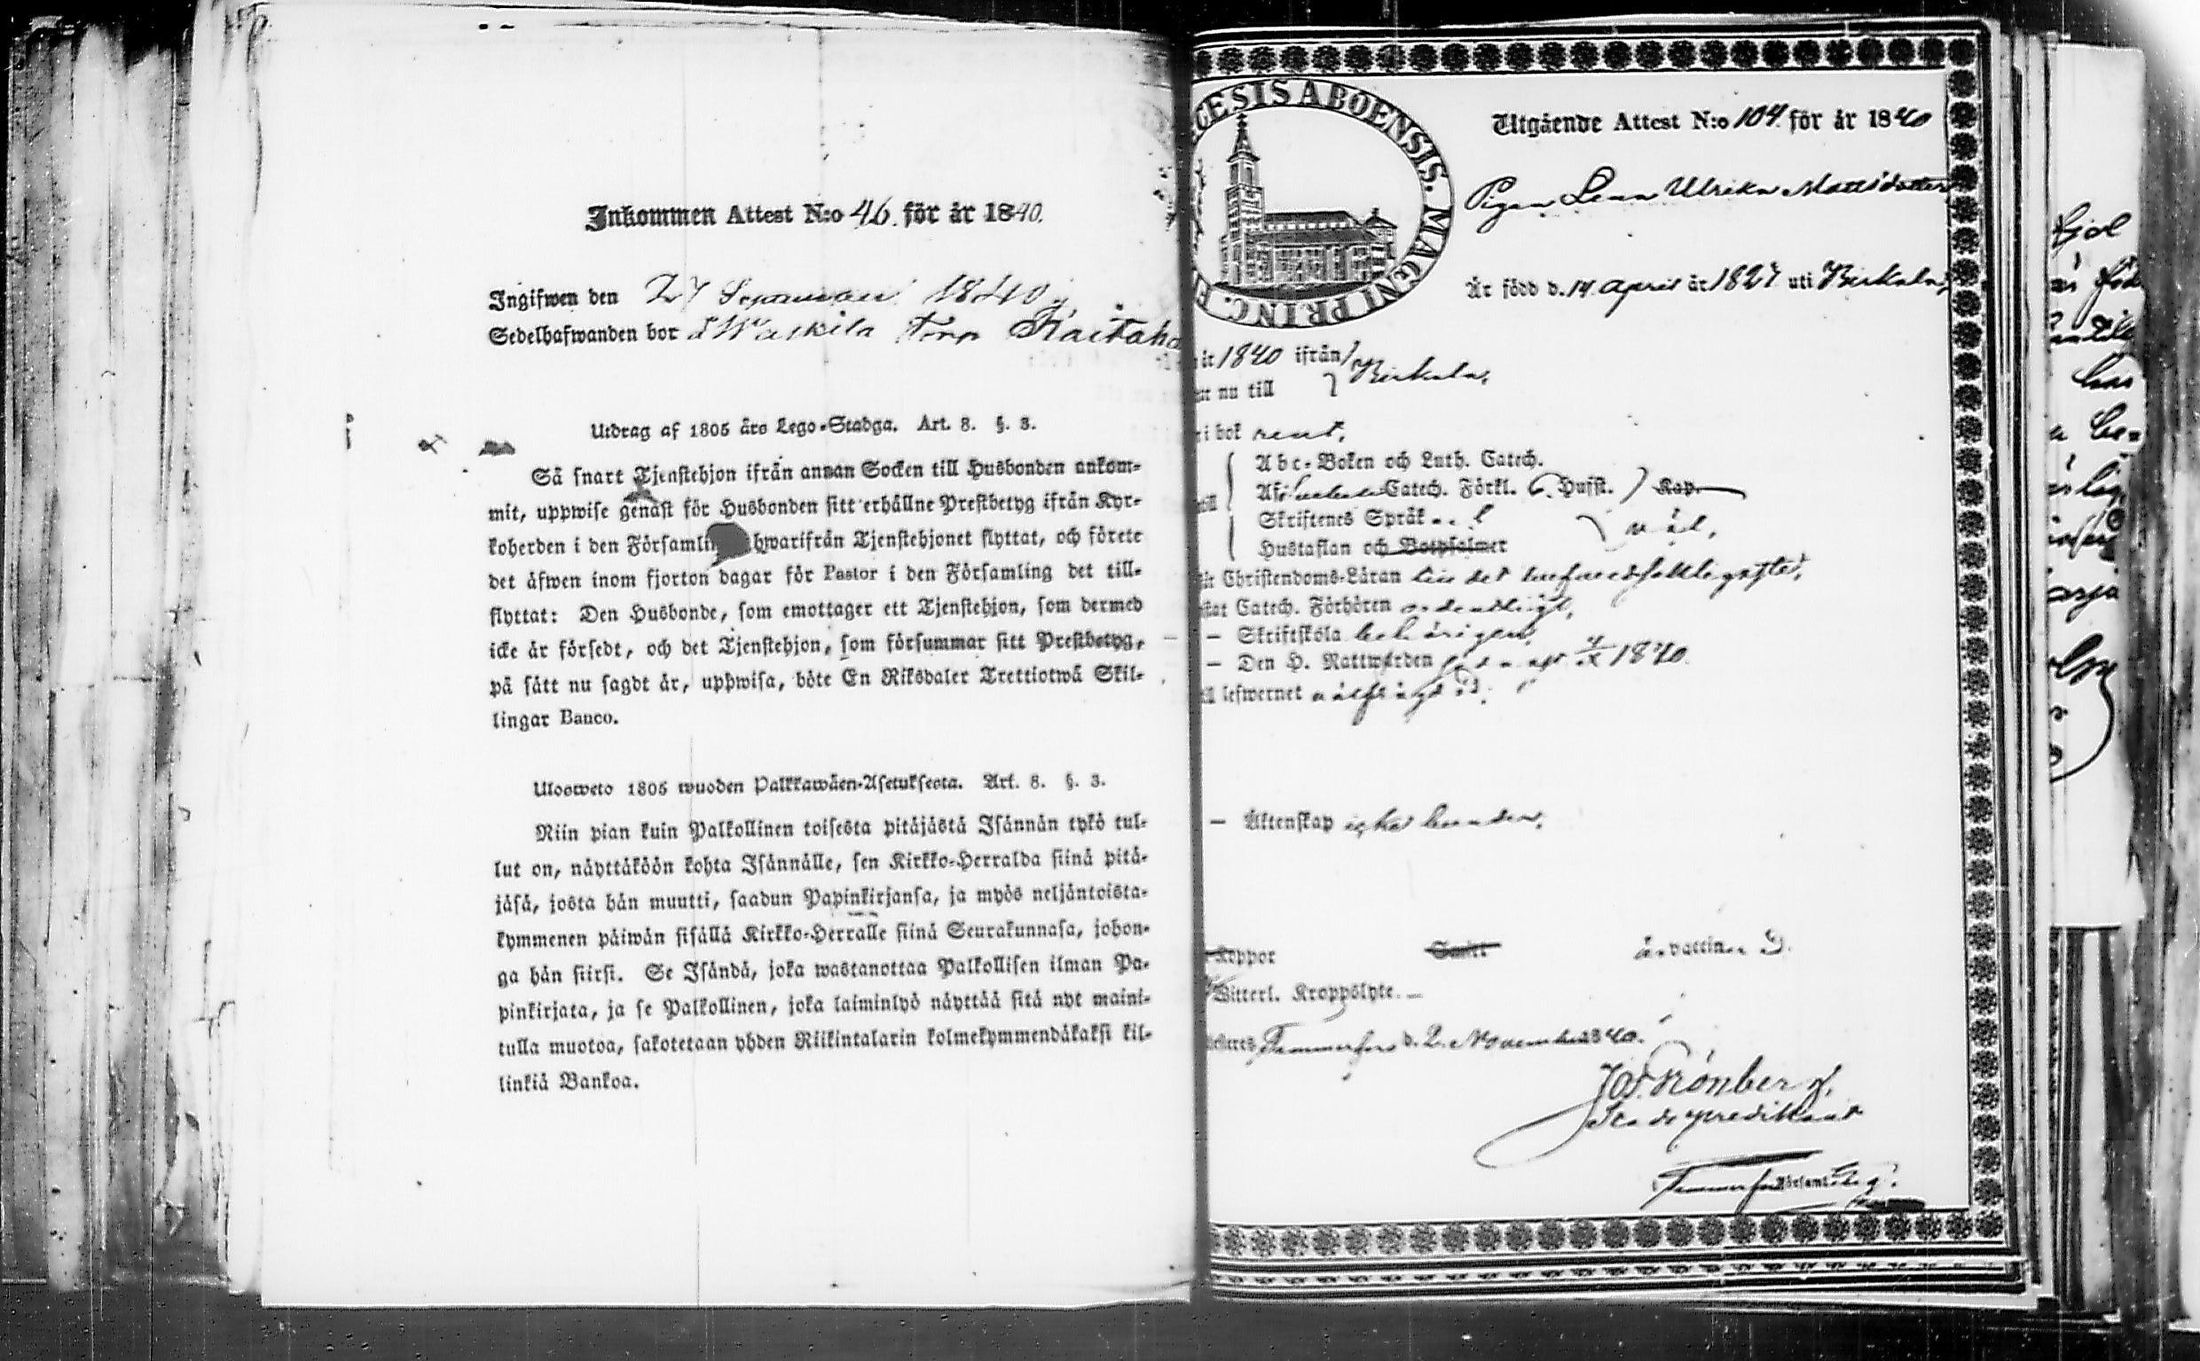 Inkommen Attest N:o 46. för år 1840.
Ingifwen den 27 1840
Sedelhafwanden bor Torp
Utdrag af 1805 års Lego-Stadga. Art. 8. §. 3.
Så snart Tjenstehjon ifrån annan Socken till Husbonden ankom-
mit, uppwise genast för Husbonden sitt erhållne Prestbetyg ifrån Kyr-
koherden i den Församlin hwarifrån Tjenstehjonet flyttat, och förete
det äfwen inom fjorton dagar för Pastor i den Församling det till-
flyttat: Den Husbonde, som emottager ett Tjenstehjon, som dermed
icke är försedt, och det Tjenstehjon, som försummar sitt Prestbetyg,
på sätt nu sagdt är, uppwisa, böte En Riksdaler Trettiotwå Skil-
lingar Banco.
Ulosweto 1805 wuoden Palkkawäen-Asetuksesta. Art. 8. §. 3.
Niin pian kuin Palkollinen toisesta pitäjästä Isännän tykö tul-
lut on, näyttäköön kohta Isännälle, sen Kirkko-Herralda siinä pitä-
jäsä, josta hän muutti, saadun Papinkirjansa, ja myös neljäntoista-
kymmenen päiwän sisällä Kirkko-Herralle siinä Seurakunnasa, johon-
ga hän siirsi. Se Isändä, joka wastanottaa Palkollisen ilman Pa-
pinkirjata, ja se Palkollinen, joka laiminlyö näyttää sitä nyt maini-
tulla muotoa, sakotetaan yhden Riikintalarin kolmekymmendäkaksi kil-
linkiä Bankoa.
CESIS ABOENSIS. MAGNI PRINC. FI
Utgående Attest N:o 104. för år 1840
Pigan Lena Ulrika Mattsdotter
Är född d. 14 april år 1827 uti Birkala,
år 1840 ifrån
nu till Birkala,
i bok rent,
Abc-Boken och Luth. Catech.
Catech. Förkl. Husst. Kap.
Skriftenes Språk väl,
Hustaflan och Botpsalmer
Christendoms-Läran
Catech. Förhören ordentligt,
— Skriftskola behörigen,
— Den H. Nattwarden 1840.
lefwernet välfrägdad.
— Äktenskap icke bunden,
Koppor
Witterl. Kroppslyte. —
Tammerfors d. 2. November 1840.
Grönberg,
Stadspredikant
Tammerfors Församling.